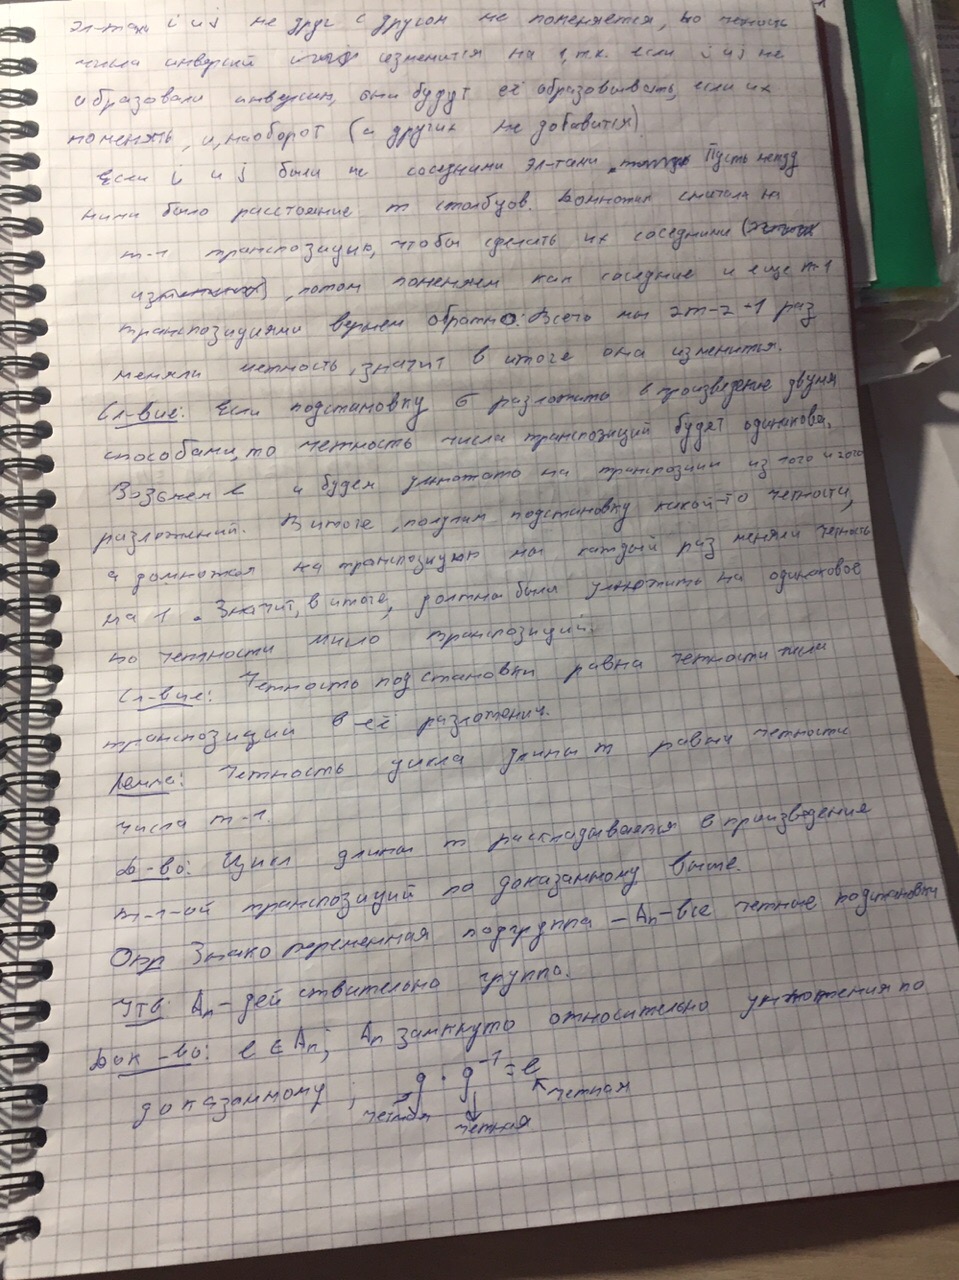 эл-тами i и j не друг с другом не поменяется, но четность
числа инверсий изменится на 1, т.к. если i и j не
образовали инверсию, они будут её образовывать, если их
поменять, и, наоборот (а других не добавится).
Если i и j были не соседними эл-тами. Пусть между
ними было расстояние m столбцов. Домножим сначала на
m-1 транспозицию, чтобы сделать их соседними
, потом поменяем как соседние и еще m-1
транспозициями вернем обратно. Всего мы 2m-2+1 раз
меняли четность, значит в итоге она изменится.
Сл-вие: Если подстановку σ разложить в произведение двумя
способами, то четность числа транспозиций будет одинакова.
Возьмем e и будем умножать на транспозиции из того и того
разложений. В итоге, получим подстановку какой-то четности,
а домножая на транспозицию мы каждый раз меняли четность
на 1. Значит, в итоге, должны были умножить на одинаковое
по четности число транспозиций.
Сл-вие: Четность подстановки равна четности числа
транспозиций в её разложении.
Лемма: Четность цикла длины m равна четности
числа m-1.
Д-во: Цикл длины m раскладывается в произведение
m-1-ой транспозиций по доказанному выше.
Опр Знакопеременная подгруппа - Aₙ - все четные подстановки
Утв: Aₙ - действительно группа.
Док-во: e ∈ Aₙ; Aₙ замкнуто относительно умножения по
доказанному; g · g⁻¹ = e
четная четная четная